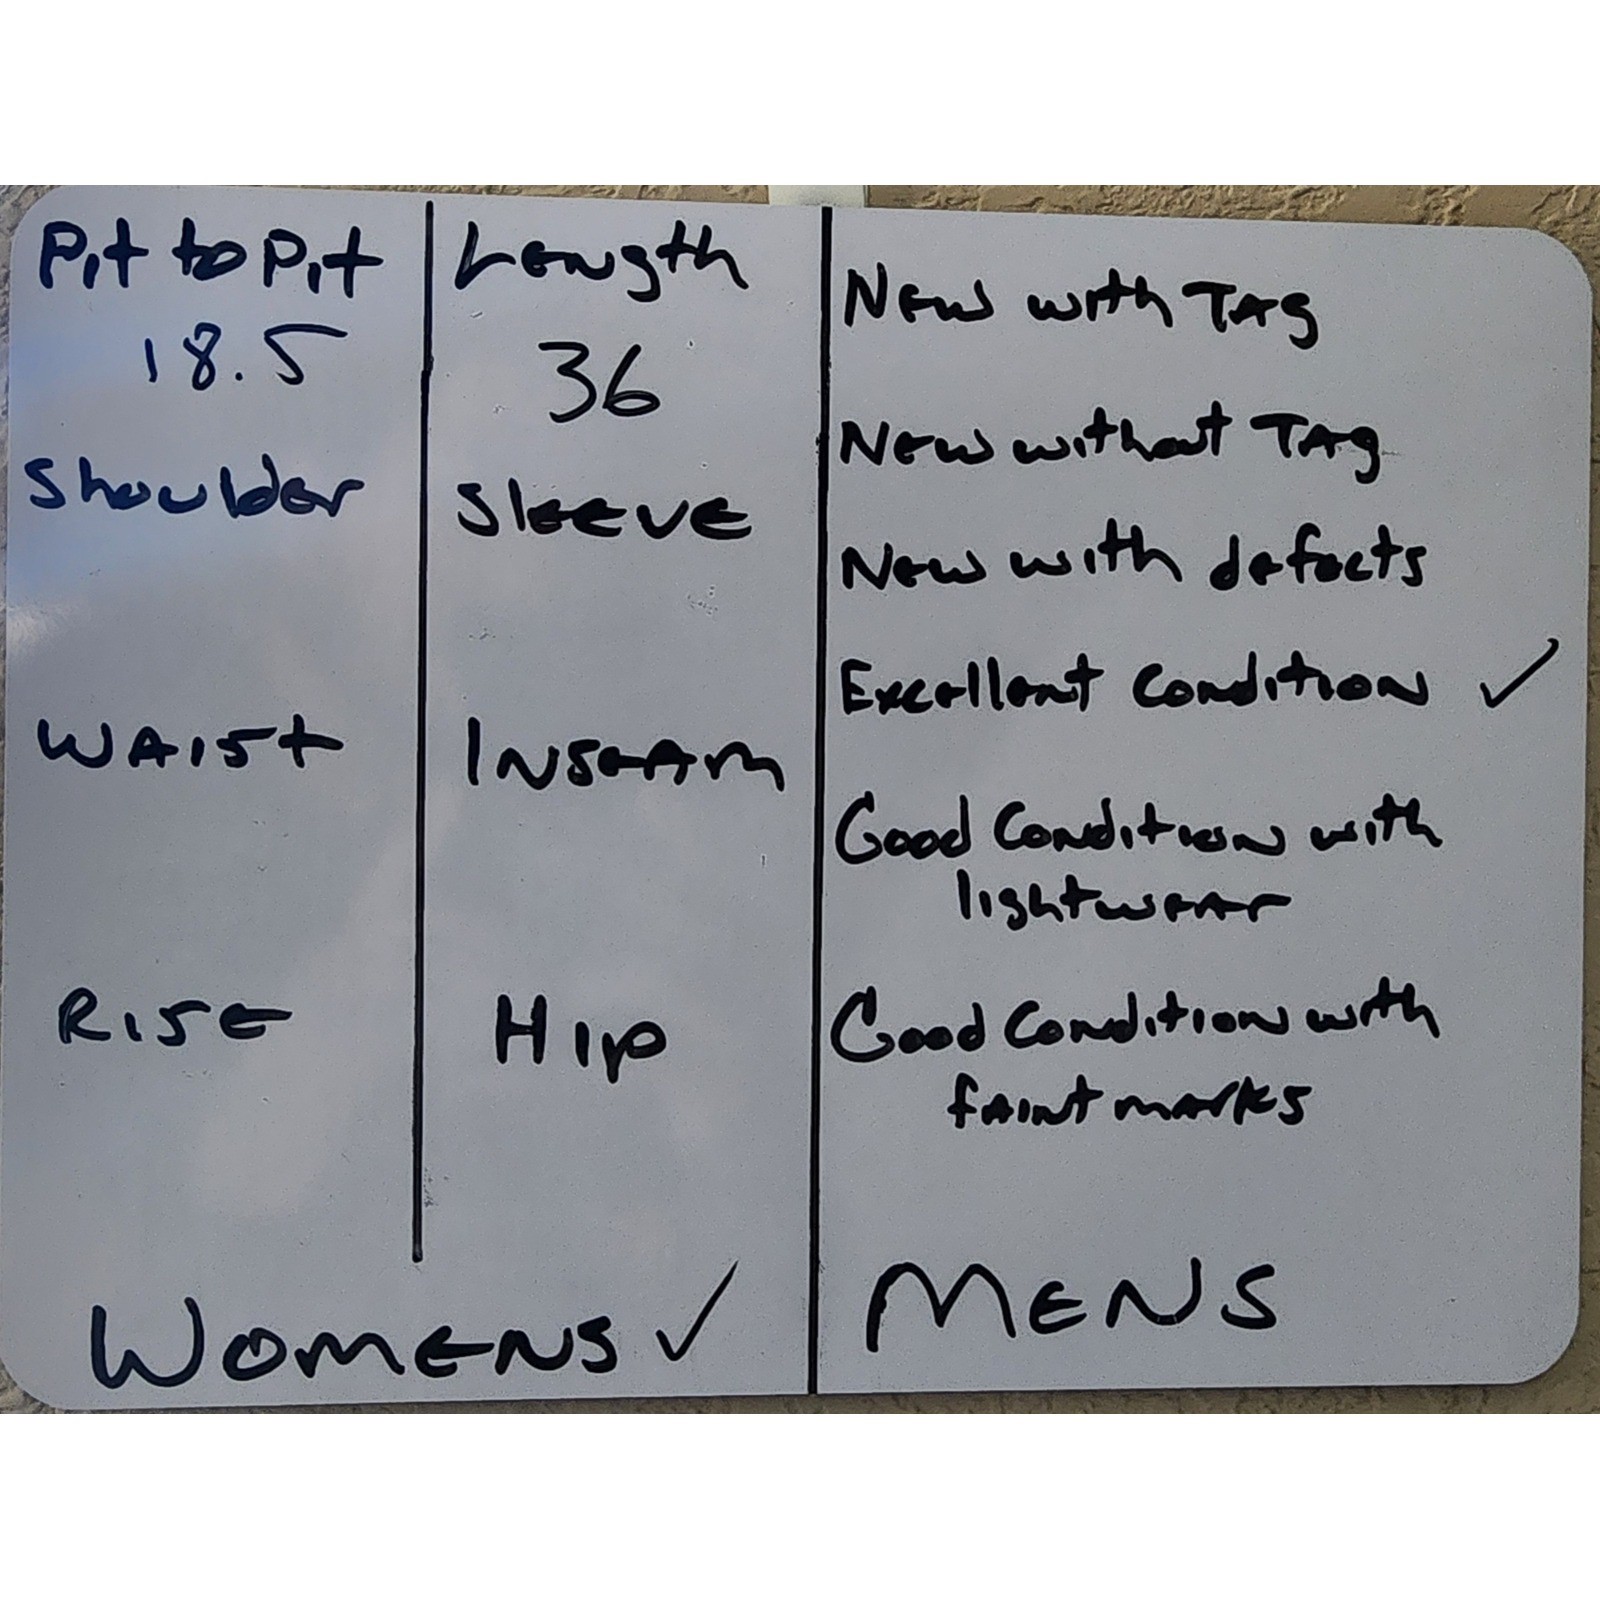 Pit to Pit
18.5
Shoulder
Waist
Rise
Length
36
Sleeve
Inseam
Hip
New with Tag
New without Tag
New with defects
Excellent Condition ✓
Good Condition with
lightwear
Good Condition with
faint marks
Womens ✓
Mens